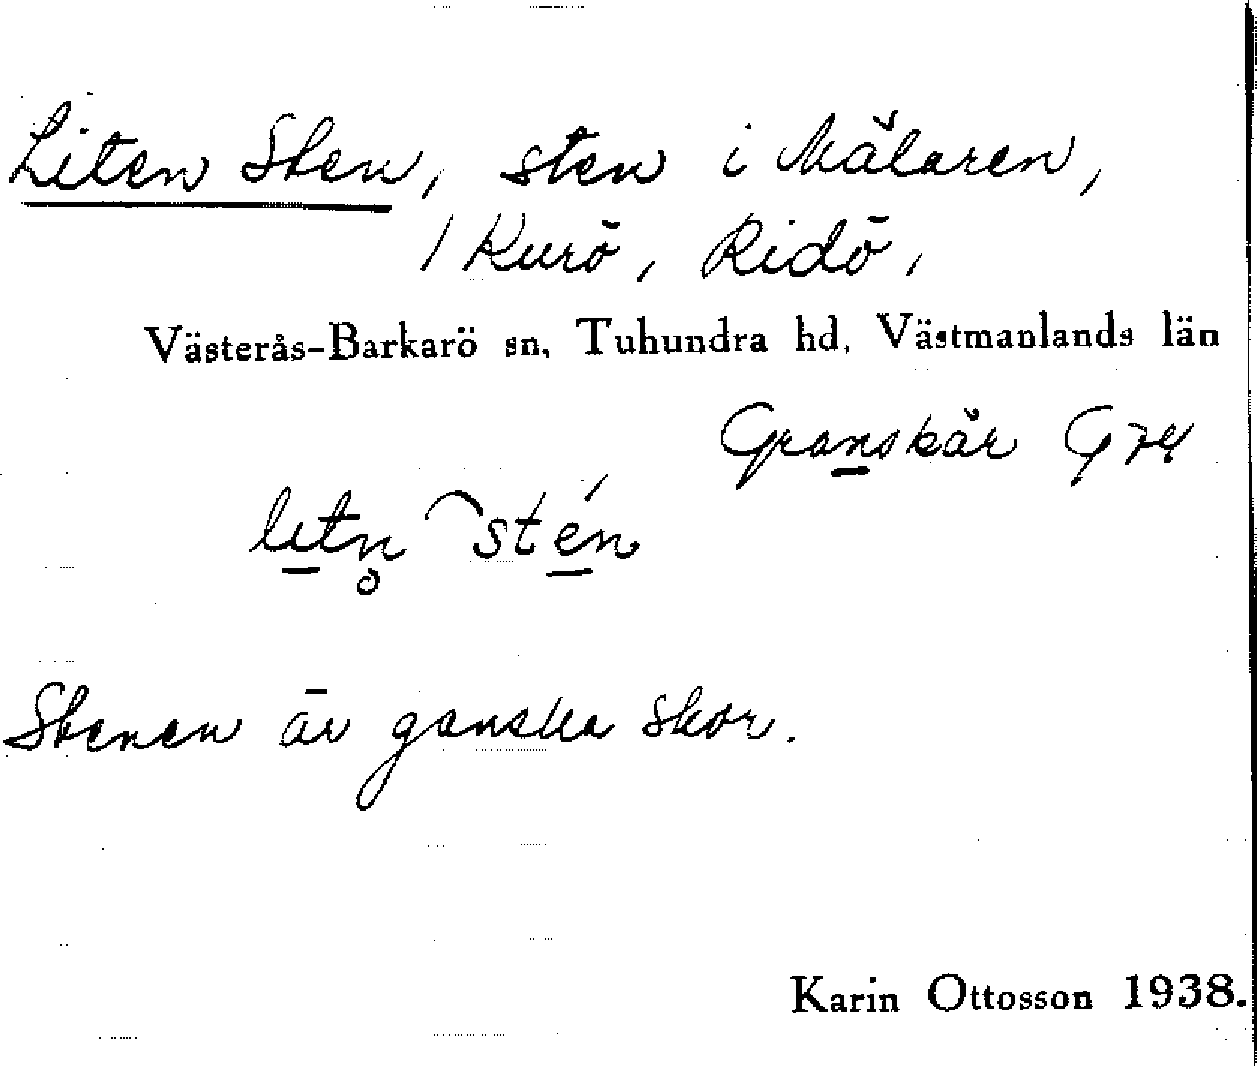 Liten Sten, sten i Mälaren,
/ Kurö, Ridö,
Västerås-Barkarö sn, Tuhundra hd, Västmanlands län
Granskär G74
litn̥ ⁀stén
Stenen är ganska stor.
Karin Ottosson 1938.